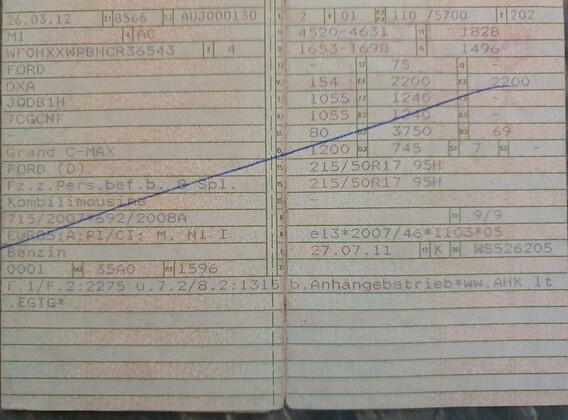 26.03.12 8566 AUJ000130
M1 AC
WF0HXXWPBHCR36543 4
FORD
DXA
JQDB1H
7CGCNF
-
Grand C-MAX
FORD (D)
Fz.z.Pers.bef.b. 8 Spl.
Kombilimousine
715/2007*692/2008A
EURO5;A;PI/CI; M, N1 I
Benzin
0001 35A0 1596
F.1/F.2:2275 u.7.2/8.2:1315 b.Anhängebetrieb*ww.AHK lt
.EGTG*
2 01 110 /5700 202
4520-4631 1828
1653-1698 1496
- 75 -
154 2200 2200
1055 1240 -
1055 1240 -
80 3750 69
1200 745 7 -
215/50R17 95H
215/50R17 95H
-
9/9
e13*2007/46*1103*05
27.07.11 K WS526205